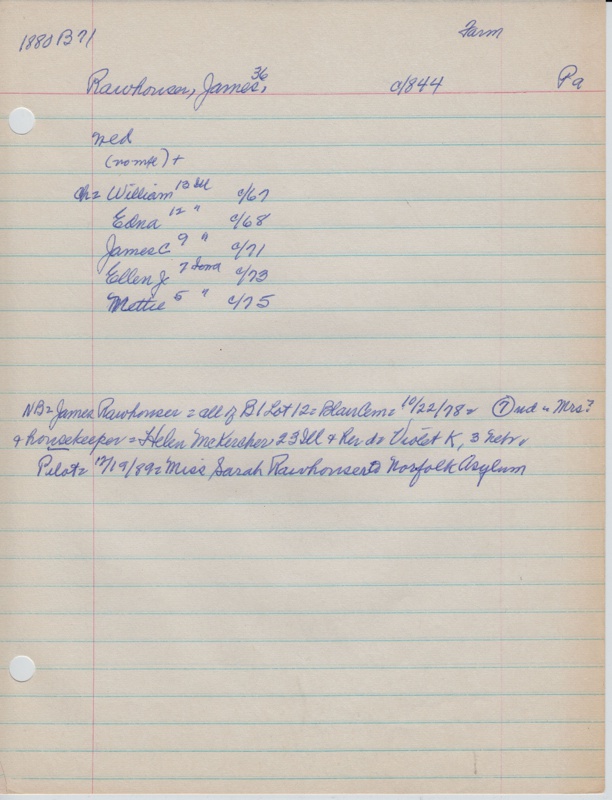 1880 B71
Farm
Rawhouser, James, 36 c/844 Pa
wed
(name) +
ch = William 13 Ill c/67
Edna 12 " c/68
James C 9 " c/71
Ellen J. 7 Iowa c/73
Mettie 5 " c/75
NB = James Rawhouser = all of B1 Lot 12 = Blair Cem = 10/22/78 = ? ud = Mrs?
& housekeeper = Helen McKercher 23 Ill & her da = Violet K, 3 Nebr.
Pilot = 12/19/89 = Miss Sarah Rawhouser to Norfolk Asylum